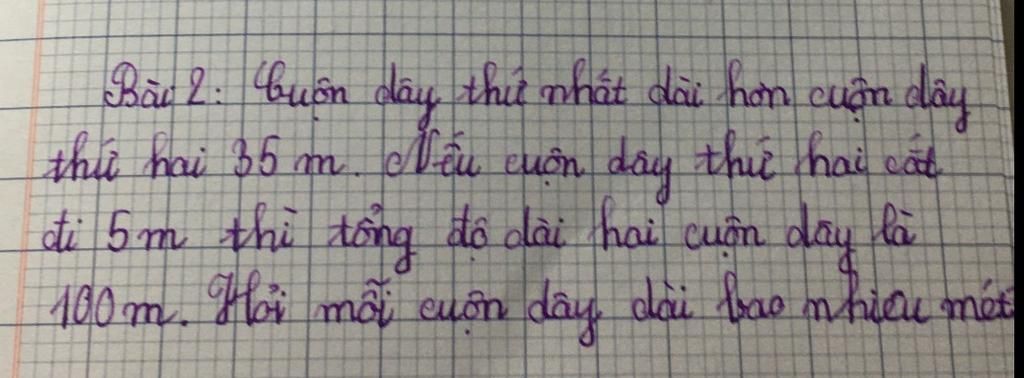 Bài 2: Cuộn dây thứ nhất dài hơn cuộn dây
thứ hai 35 m. Nếu cuộn dây thứ hai cắt
đi 5m thì tổng độ dài hai cuộn dây là
100m. Hỏi mỗi cuộn dây dài bao nhiêu mét